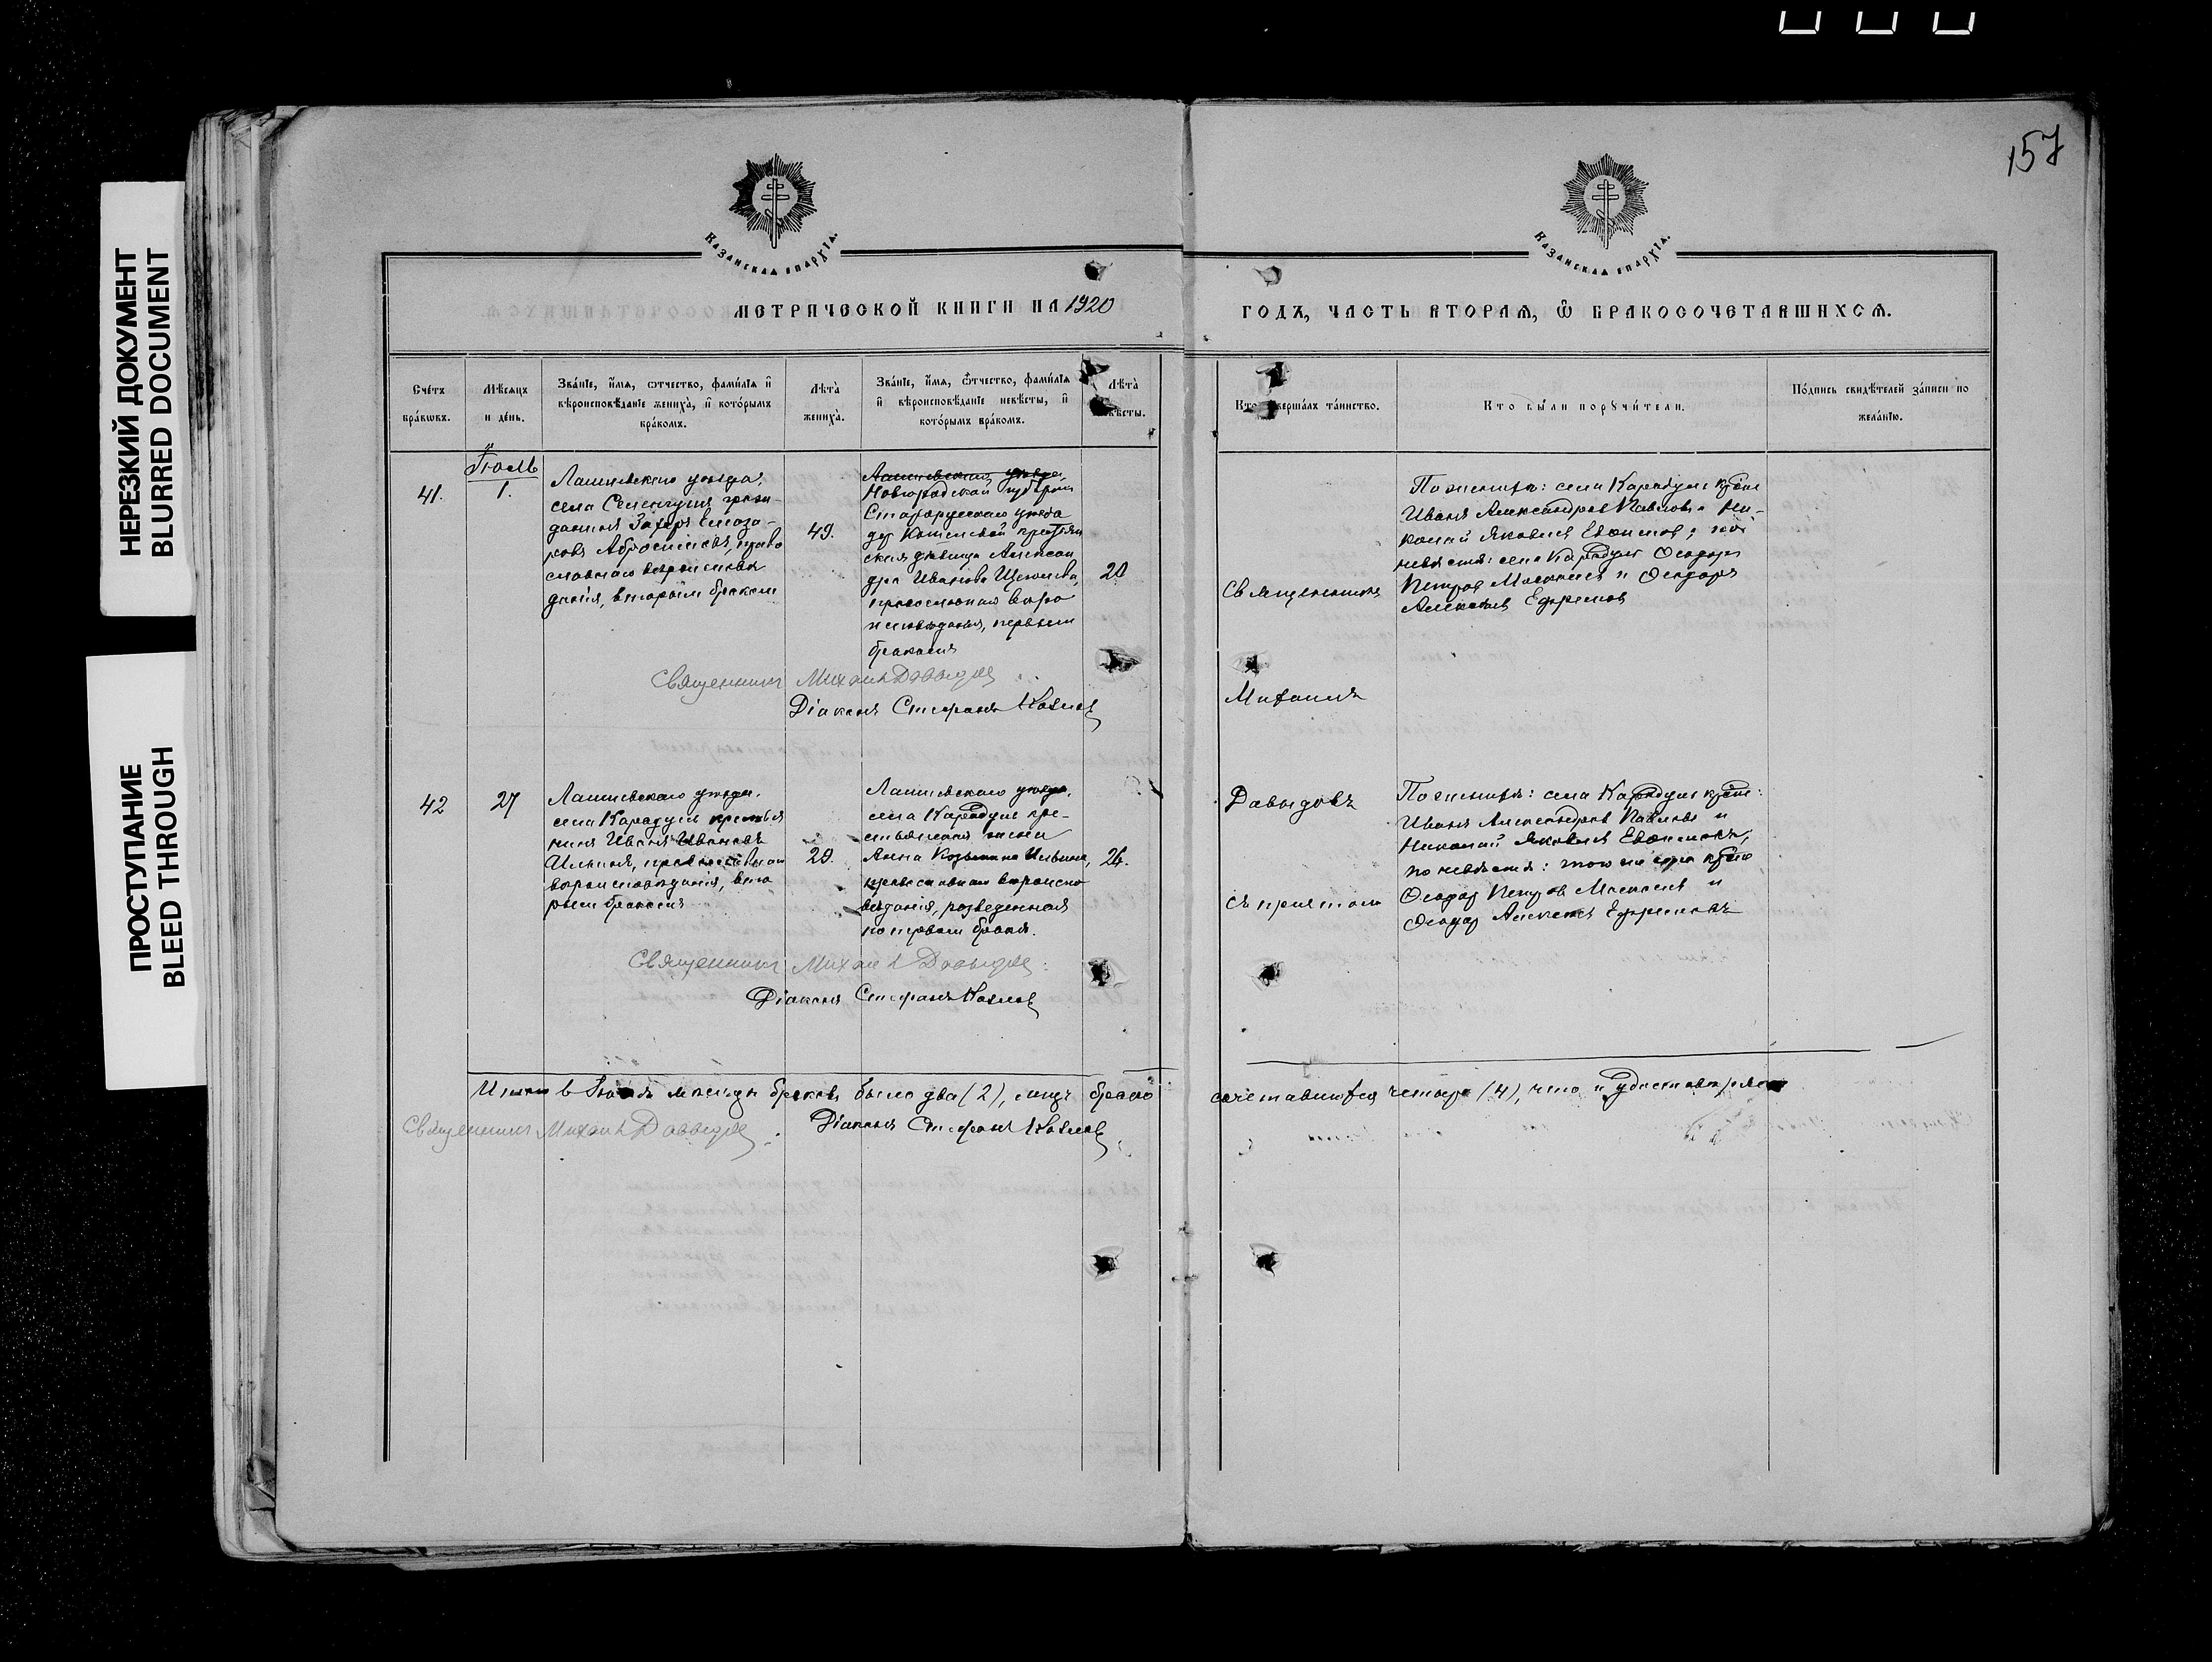 НЕРЕЗКИЙ ДОКУМЕНТ
BLURRED DOCUMENT
ПРОСТУПАНИЕ
BLEED THROUGH
157
КАЗАНСКАЯ ЕПАРХІЯ.
КАЗАНСКАЯ ЕПАРХІЯ.
МЕТРИЧЕСКОЙ КНИГИ НА 1920
ГОДЪ, ЧАСТЬ ВТОРАЯ, Ѿ БРАКОСОЧЕТАВШИХСѦ.
Счетъ браковъ.
Мѣсяцъ и день.
Званіе, имя, отчество, фамилія и
вѣроисповѣданіе жениха, и которымъ
бракомъ.
Лѣта
жениха.
Званіе, имя, отчество, фамилія
и вѣроисповѣданіе невѣсты, и
которымъ бракомъ.
Лѣта
невѣсты.
Кто совершалъ таинство.
Кто были поручители.
Подпись свидѣтелей записи по
желанію.
41.
Іюль
1.
Лаишевскаго уѣзда,
села
граж-
данинъ Елеаза-
ровъ право
славнаго вѣроисповѣ
данія, вторымъ бракомъ
49.
Лаишевскаго уѣзда
Новгородской губерніи
Старорусскаго уѣзда
дер крестьян
ская дѣвица Алексан
дра Иванова
православнаго вѣро
исповѣданія, первымъ
бракомъ
20
Священникъ
По женихѣ: села Карадули крест
Иванъ Александровъ Павловъ и Ни-
колай Яковлевъ Евѳимовъ; по
невѣстѣ: села Карадули Ѳеодоръ
Петровъ и Ѳеодоръ
Алексѣевъ Ефремовъ
Священникъ Михаилъ Давыдовъ
Діаконъ Стефанъ Козловъ
Михаилъ
42
27
Лаишевскаго уѣзда.
села Карадули крестья
нинъ Иванъ Ивановъ
Ильинъ, православнаго
вѣроисповѣданія, вто
рымъ бракомъ
29.
Лаишевскаго уѣзда,
села Карадули кре-
стьянская жена
Анна Козьмина Ильина,
православнаго вѣроиспо
вѣданія, разведенная
по первомъ бракѣ.
26.
Давыдовъ
съ причтомъ
По женихѣ: села Карадули крест:
Иванъ Александровъ Павловъ и
Николай Яковлевъ Евѳимовъ;
по невѣстѣ: того же села крест
Ѳеодоръ Петровъ и
Ѳеодоръ Алексѣевъ Ефремовъ
Священникъ Михаилъ Давыдовъ
Діаконъ Стефанъ Козловъ
Итого в Іюлѣ мѣсяцѣ браковъ было два (2), лицъ брако
сочетавшихся четыре (4), что и удостовѣряемъ
Священникъ Михаилъ Давыдовъ
Діаконъ Стефанъ Козловъ